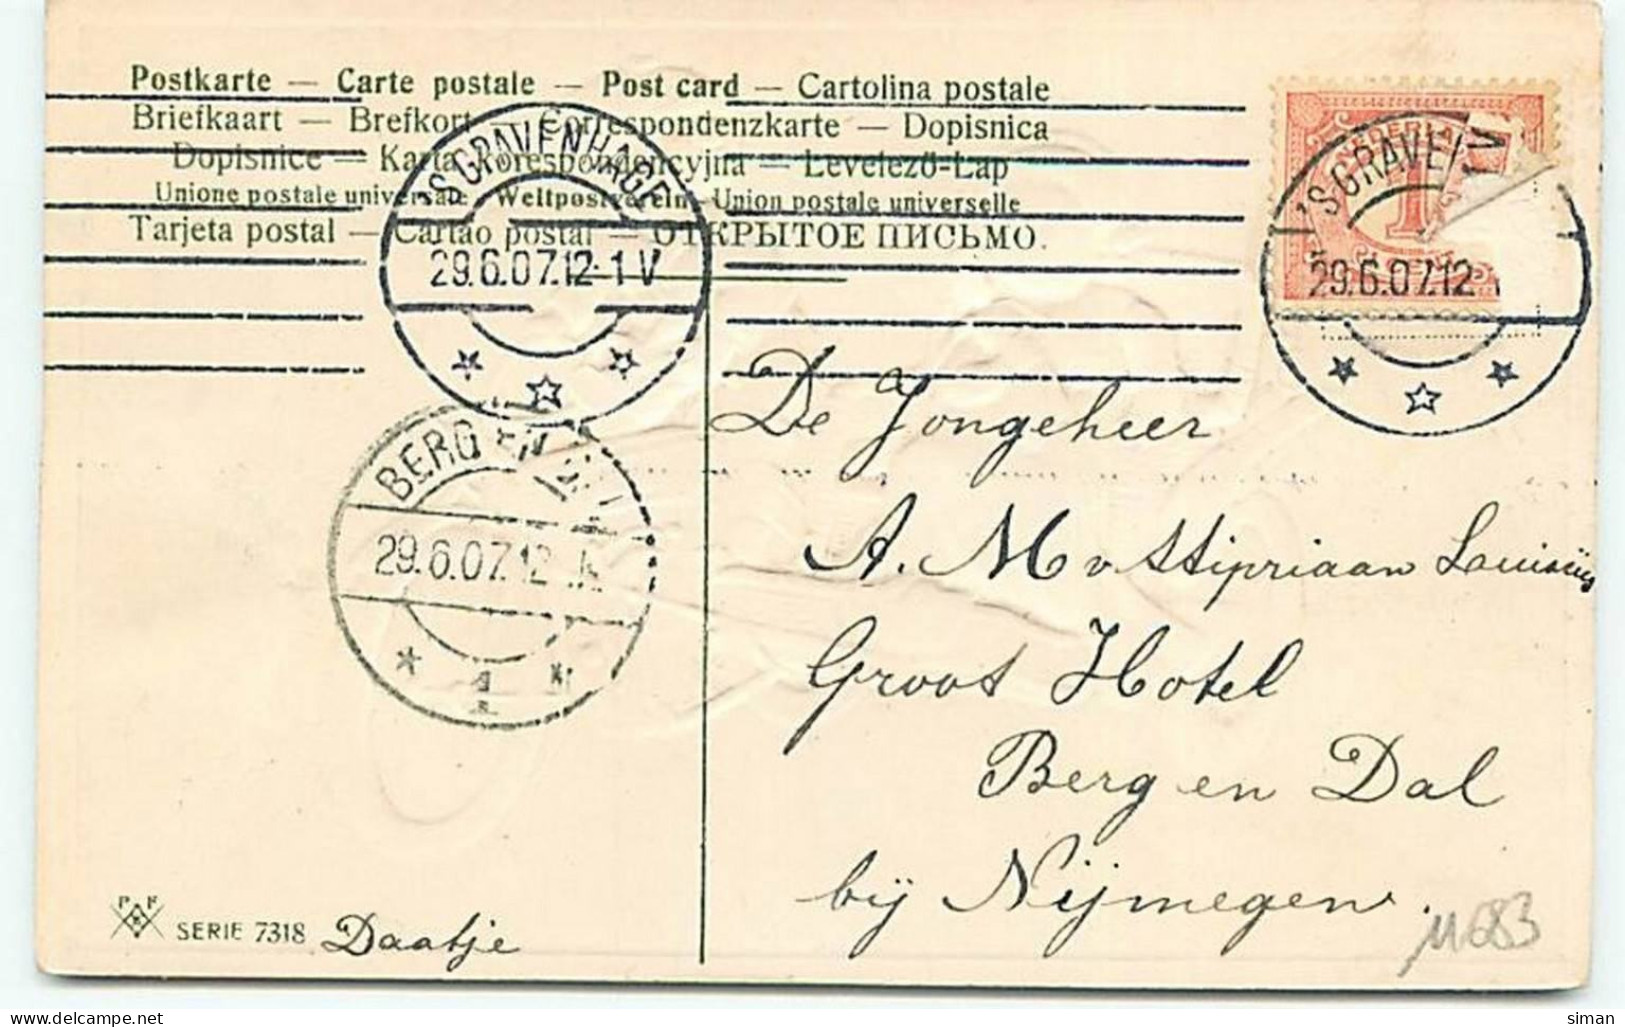 Postkarte — Carte postale — Post card — Cartolina postale
Briefkaart — Brefkort — Correspondenzkarte — Dopisnica
Dopisnice — Karta Korespondencyjna — Levelező-Lap
Unione postale universale Weltpostverein Union postale universelle
Tarjeta postal — Cartão postal — ОТКРЫТОЕ ПИСЬМО.
'S GRAVENHAGE
29.6.07.12-1 V
'S GRAVEN
1 V
29.6.07.12
1
BERG EN DAL
29.6.07.12
1
De Jongeheer
A. M v Stipriaan Luiscius
Groot Hotel
Berg en Dal
bij Nijmegen.
P F
SERIE 7318 Daatje
siman